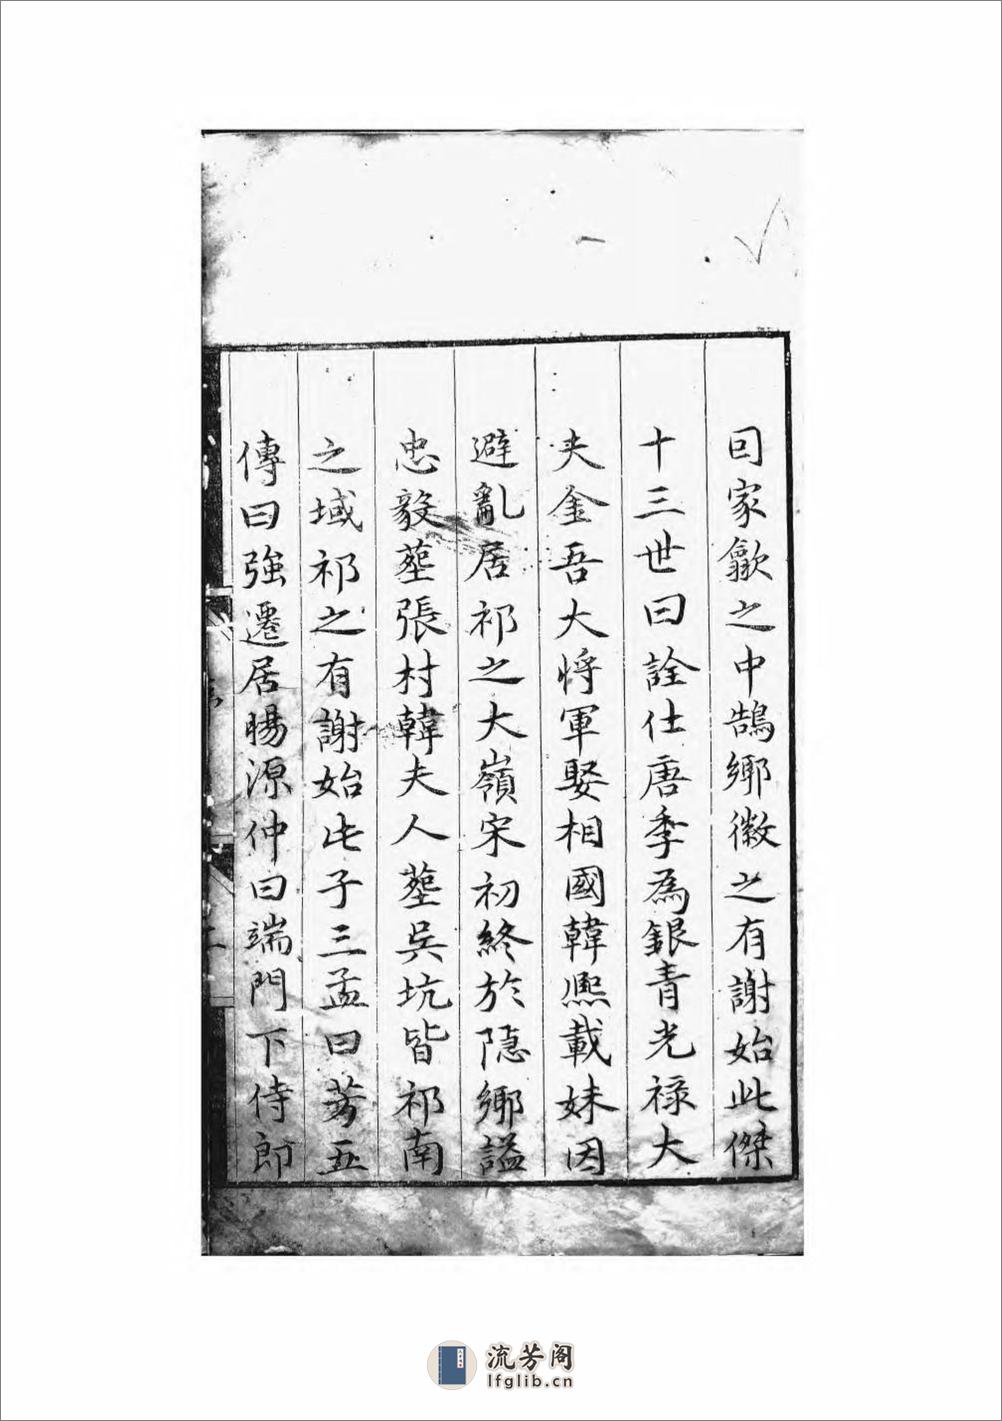 囙家歙之中鵠鄉徽之有謝始此傑
十三世曰詮仕唐季為銀青光祿大
夫金吾大將軍娶相國韓熈載妹因
避亂居祁之大嶺宋初終於隠鄉謚
忠毅塟張村韓夫人塟吳坑皆祁南
之域祁之有謝始此子三孟曰芳五
傳曰強遷居暘源仲曰端門下侍郎
流芳阁
lfglib.cn